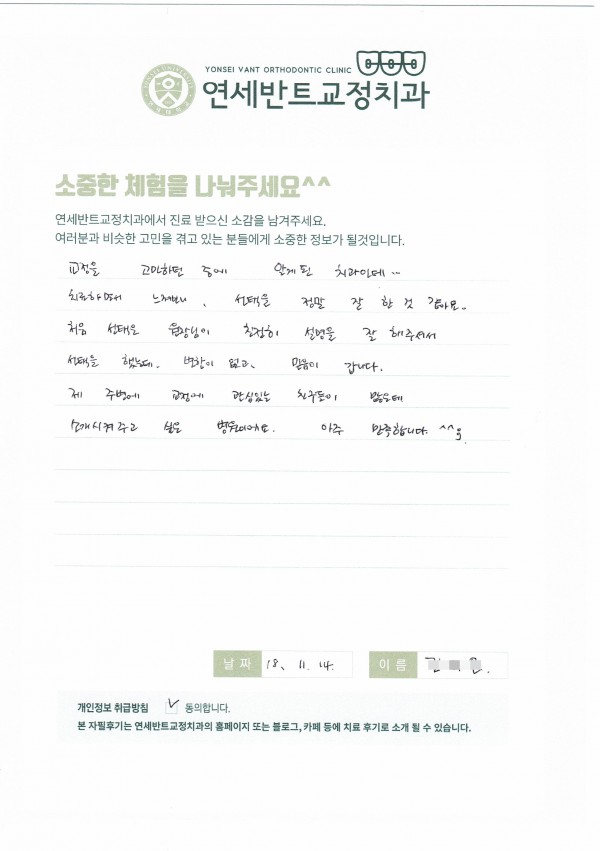 YONSEI VANT ORTHODONTIC CLINIC
연세반트교정치과
소중한 체험을 나눠주세요^^
연세반트교정치과에서 진료 받으신 소감을 남겨주세요.
여러분과 비슷한 고민을 겪고 있는 분들에게 소중한 정보가 될것입니다.
교정을 고민하던 중에 알게된 치과인데...
치료하면서 느껴보니, 선택을 정말 잘 한 것 같아요..
처음 선택은 원장님이 친절히 설명을 잘 해주셔서
선택을 했는데, 변함이 없고, 믿음이 갑니다.
제 주변에 교정에 관심있는 친구들이 많은데
소개시켜주고 싶은 병원이에요. 아주 만족합니다. ^^
날 짜 18. 11. 14.
이 름
개인정보 취급방침 ✓ 동의합니다.
본 자필후기는 연세반트교정치과의 홈페이지 또는 블로그, 카페 등에 치료 후기로 소개 될 수 있습니다.